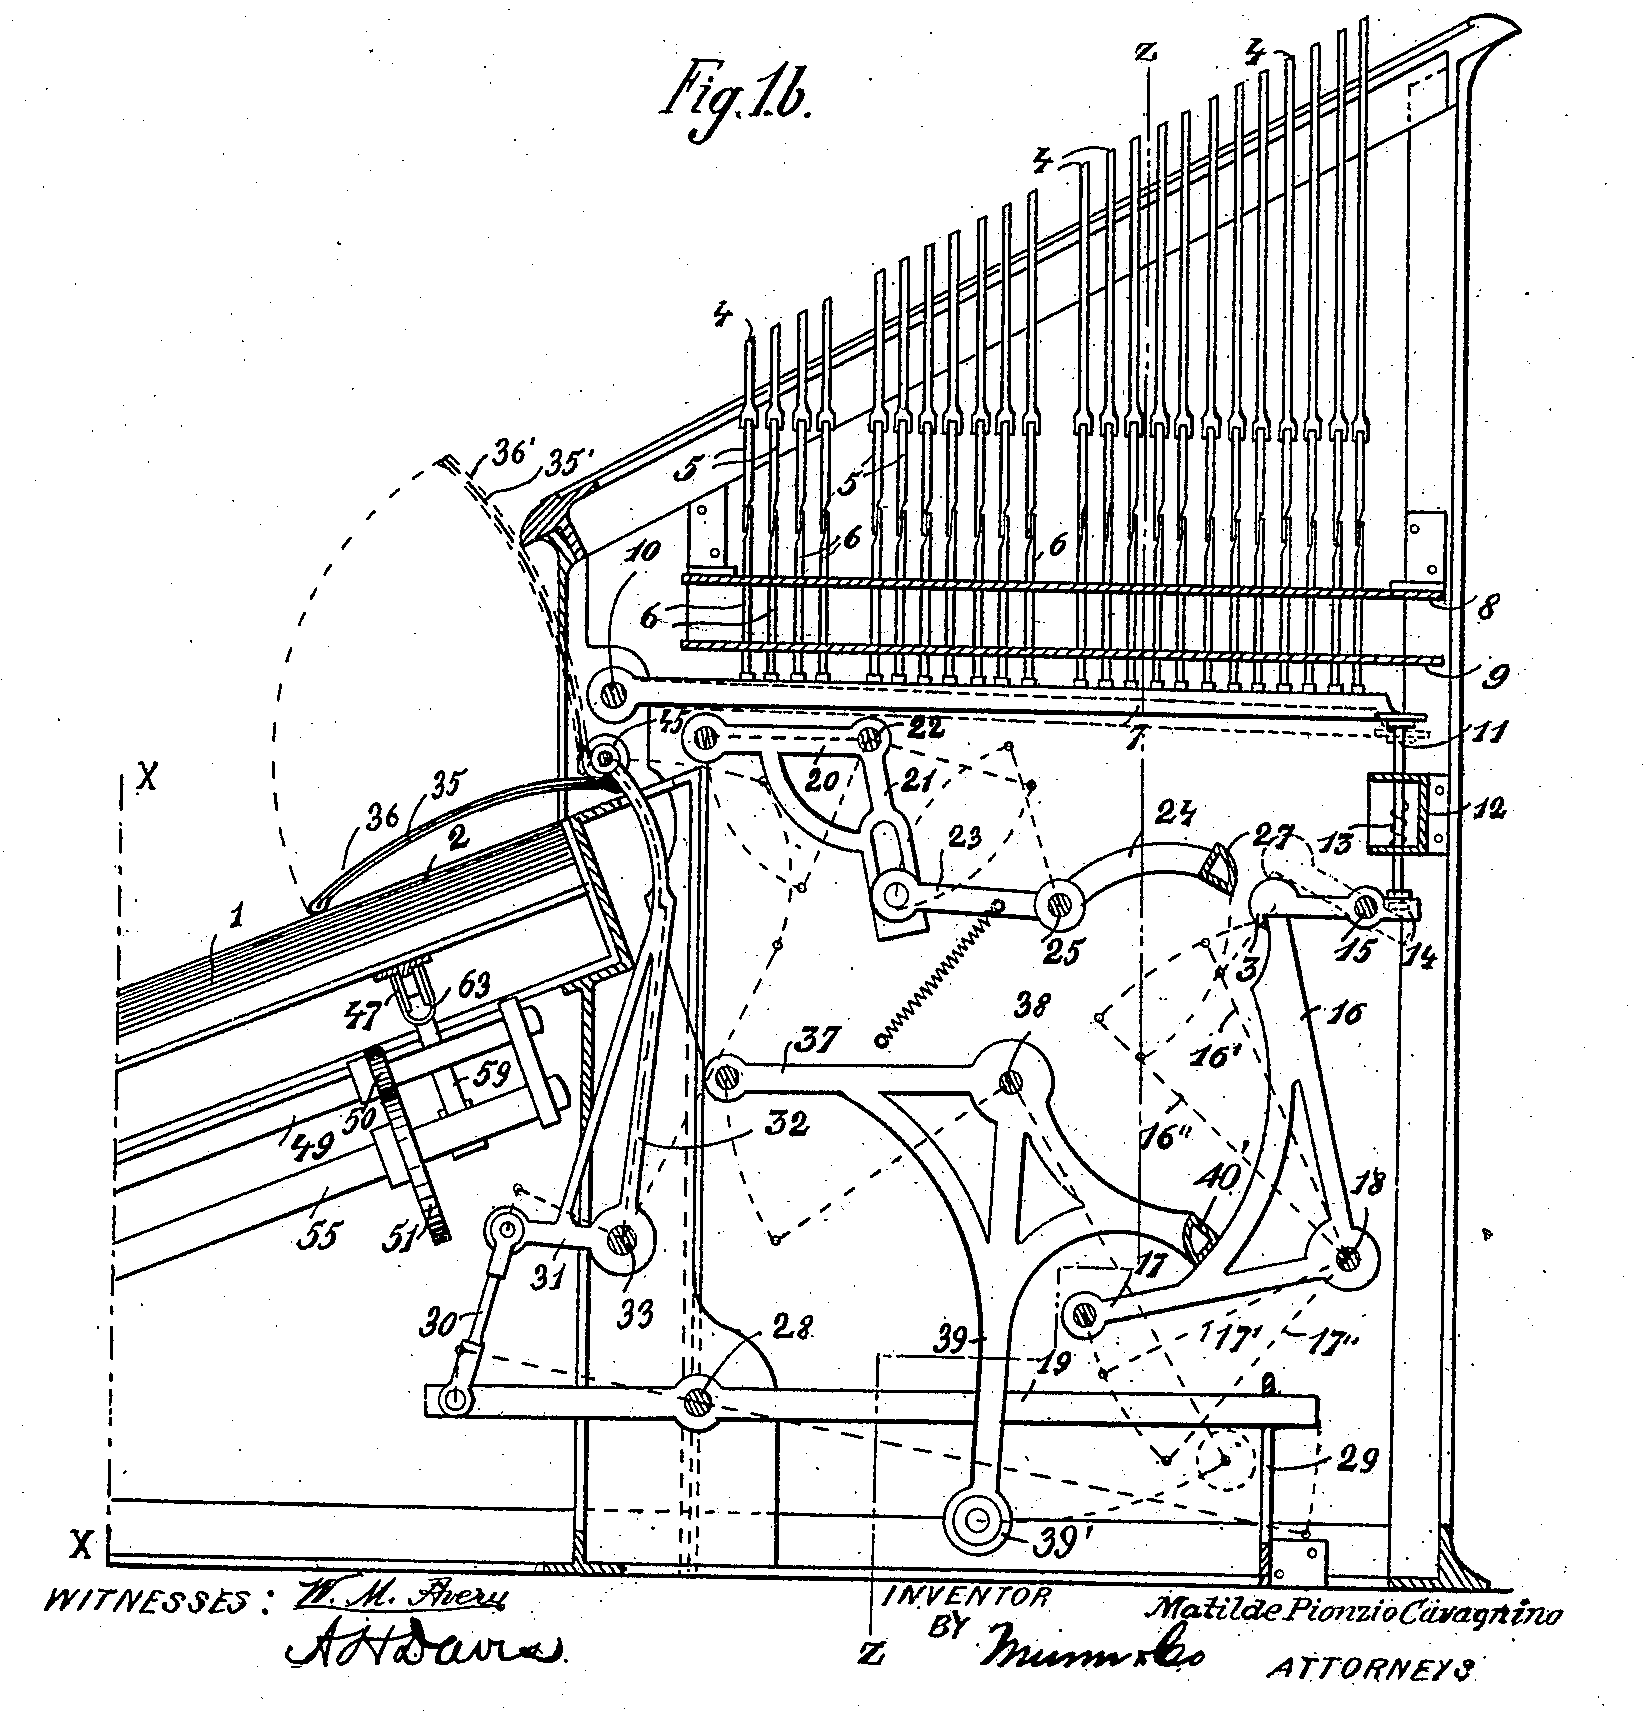 Fig. 1b.
Z
4
4
4
36'
35'
5
5
10
6
6
6
8
9
45
22
7
11
X
35
20
21
36
2
23
24
27
13
12
1
25
3
15
14
47
63
38
16
37
16'
59
50
49
32
16"
40'
18
55
51
31
17
30
33
28
39
19
17'
17"
29
X
39'
WITNESSES:
W. M. Avery
A H Davis.
INVENTOR
Matilde Pionzio Cavagnino
BY
Munn & Co
Z
ATTORNEYS